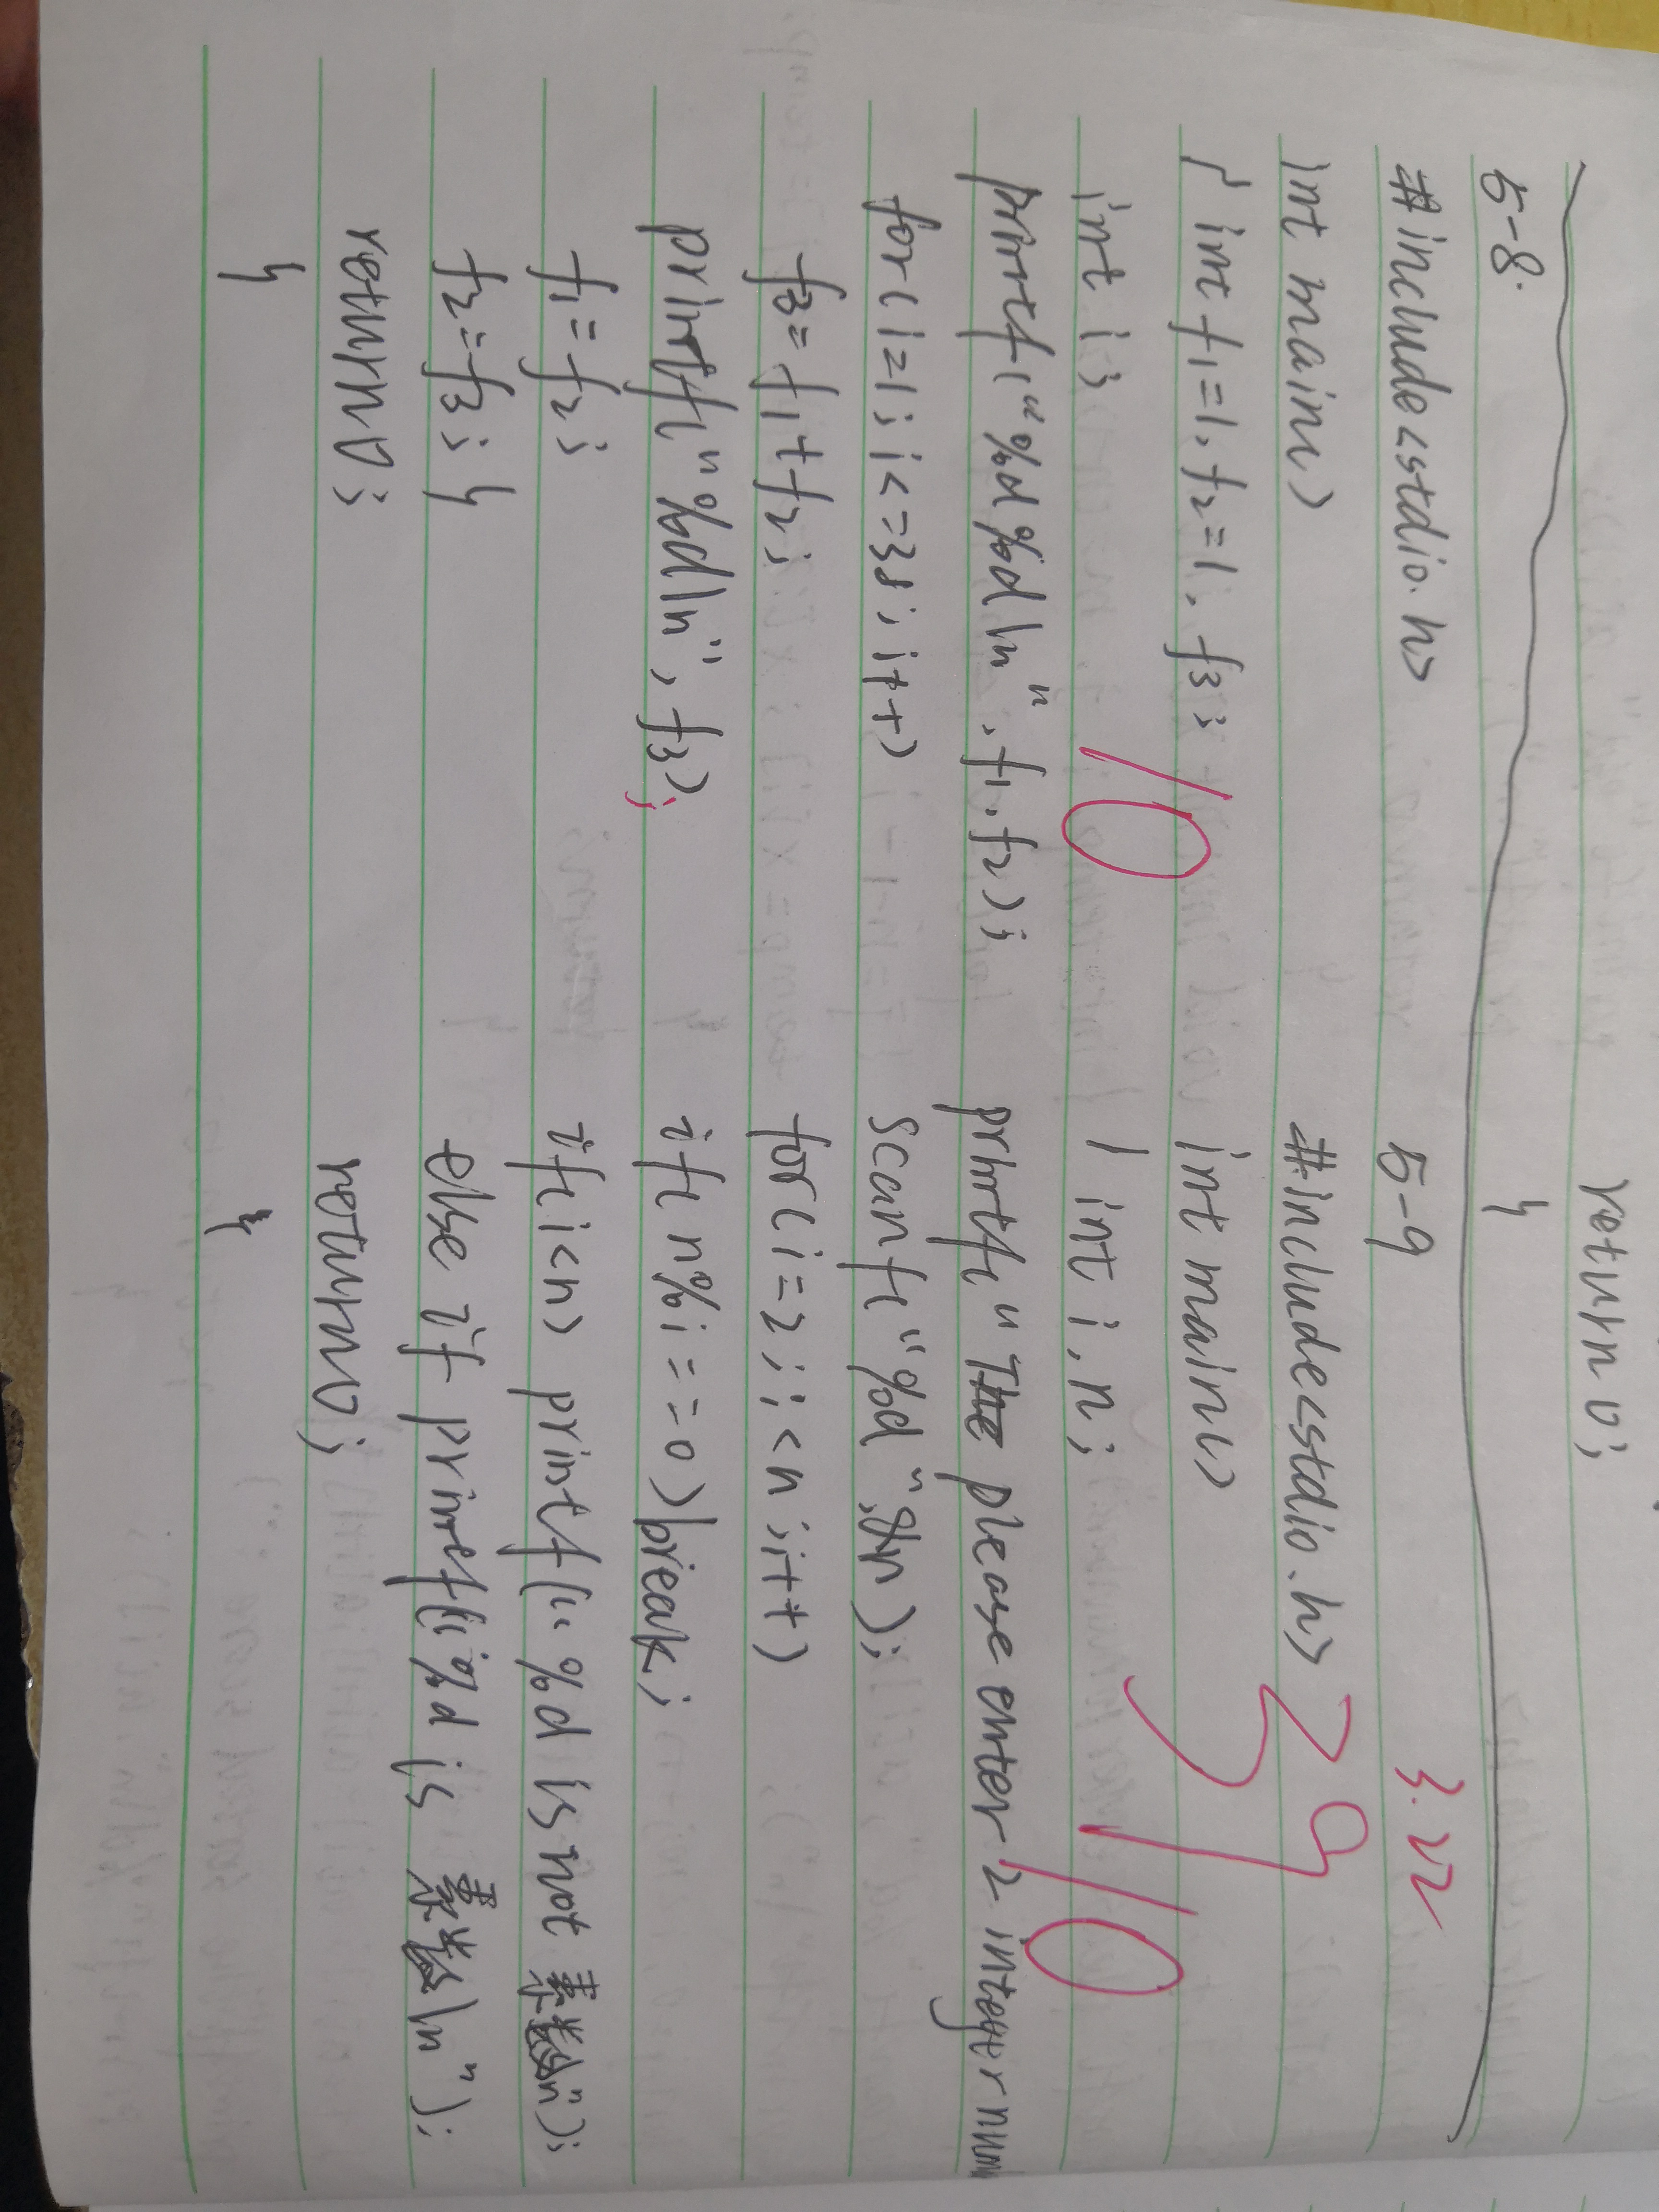 return 0;
}
5-8.
#include<stdio.h>
int main()
{ int f1=1, f2=1, f3;
int i;
printf("%d%d\n", f1, f2);
for(i=1; i<=38; i++)
f3=f1+f2;
printf("%d\n", f3);
f1=f2;
f2=f3; }
return 0;
}
10
5-9
3.22
#include<stdio.h>
39
int main()
{ int i,n;
10
printf("The please enter 2 integer num
scanf("%d",&n);
for(i=2;i<n;i++)
if(n%i==0)break;
if(i<n) printf("%d is not 素数\n");
else if printf("%d is 素数\n");
return 0;
}